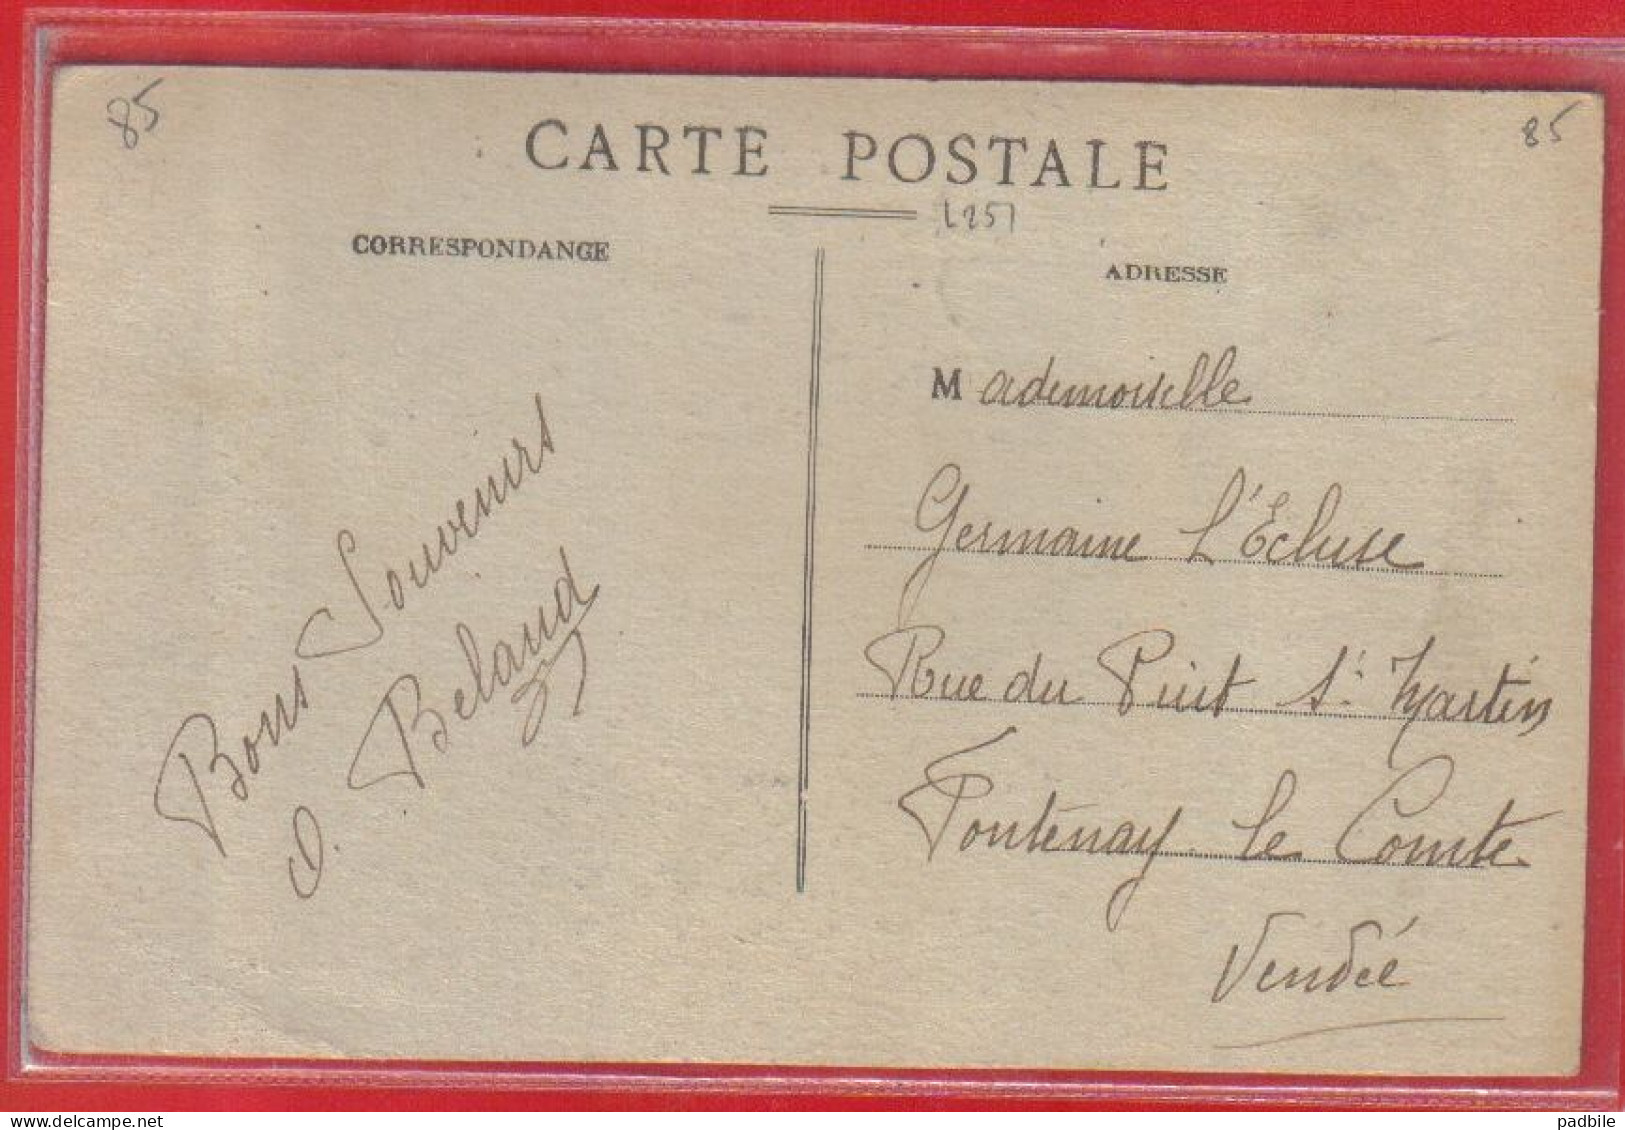 85
85
CARTE POSTALE
L251
CORRESPONDANCE
ADRESSE
Mademoiselle
Germaine L'Ecluse
Rue du Puit St Martin
Fontenay le Comte
Vendée
Bons Souvenirs
O. Belaud
padbile